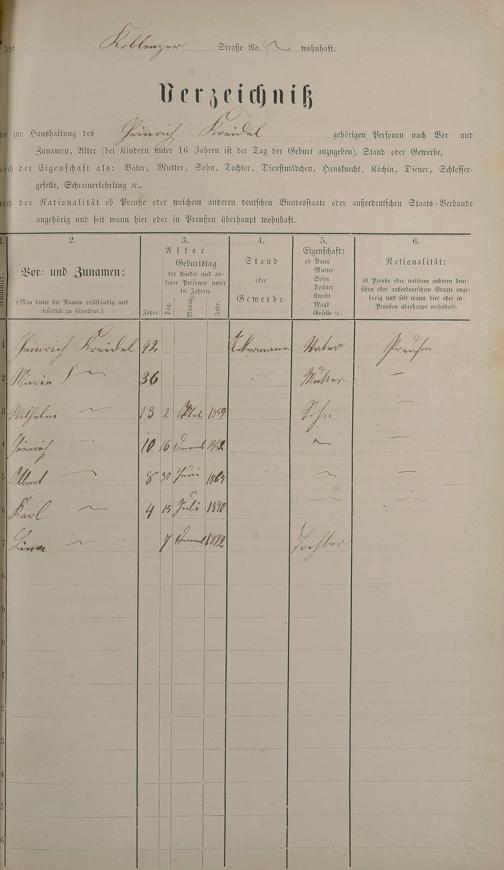 Koblenzer Straße No. wohnhaft.
Verzeichniß
zur Haushaltung des Heinrich Kreidel gehörigen Personen nach Vor- und
Zunamen, Alter (bei Kindern unter 16 Jahren ist der Tag der Geburt anzugeben), Stand oder Gewerbe,
nach der Eigenschaft als: Vater, Mutter, Sohn, Tochter, Dienstmädchen, Hausknecht, Köchin, Diener, Schlosser-
geselle, Schreinerlehrling ꝛc.,
nach der Nationalität ob Preuße oder welchem anderen deutschen Bundesstaate oder außerdeutschen Staats-Verbande
angehörig und seit wann hier oder in Preußen überhaupt wohnhaft.
1. 2. 3. 4. 5. 6.
Vor- und Zunamen:
(Man bittet die Namen vollständig und
leserlich zu schreiben.)
Alter
Geburtstag
der Kinder und an-
derer Personen unter
16 Jahren.
Jahre. Tag. Monat. Jahr.
Stand
oder
Gewerbe.
Eigenschaft:
ob Vater
Mutter
Sohn
Tochter
Knecht
Magd
Geselle ꝛc.
Nationalität:
ob Preuße oder welchem anderen deut-
schen oder außerdeutschen Staate ange-
hörig und seit wann hier oder in
Preußen überhaupt wohnhaft.
1 Heinrich Kreidel 42 Ackermann Vater Preuße
2 Marie 36 Mutter
3 Wilhelm 13 2 Oktob. 1859 Sohn
4 Heinrich 10 16 1862
5 Albert 8 30 Juni 1865
6 Karl 4 15 Juli 1870
7 Lina 7 1872 Tochter